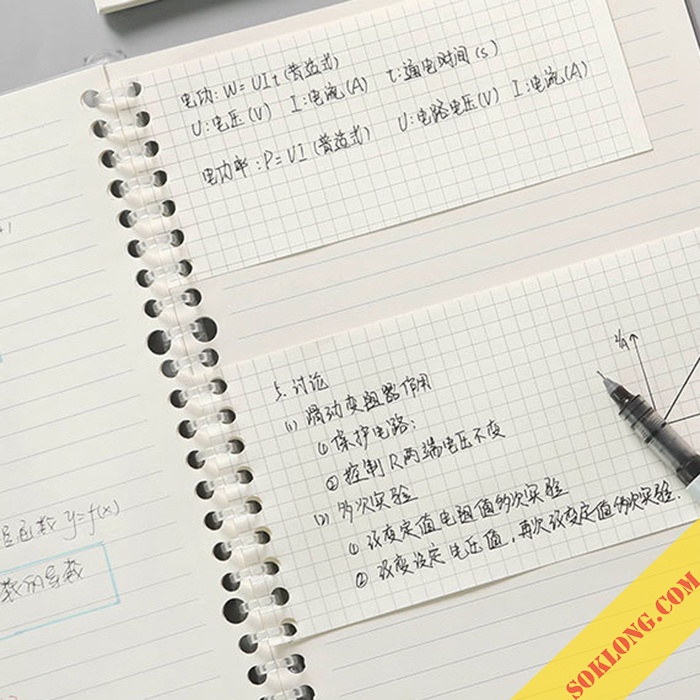 电功: W=UIt (普适式)
U:电压(V) I:电流(A) t:通电时间(s)
电功率: P=UI (普适式) U:电路电压(V) I:电流(A)
5. 讨论
(1) 滑动变阻器作用
① 保护电路;
② 控制R两端电压不变
(2) 多次实验
① 改变定值电阻值多次实验
② 改变设定电压值,再次改变定值多次实验.
I/A
函数 y=f(x)
数的导数
SOKLONG.COM